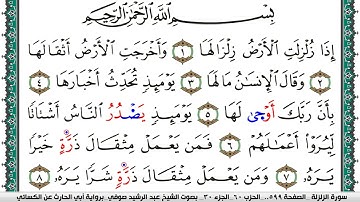 بِسْمِ ٱللَّهِ ٱلرَّحْمَٰنِ ٱلرَّحِيمِ
إِذَا زُلْزِلَتِ ٱلْأَرْضُ زِلْزَالَهَا ١ وَأَخْرَجَتِ ٱلْأَرْضُ أَثْقَالَهَا
٢ وَقَالَ ٱلْإِنسَٰنُ مَا لَهَا ٣ يَوْمَئِذٍ تُحَدِّثُ أَخْبَارَهَا ٤
بِأَنَّ رَبَّكَ أَوْحَىٰ لَهَا ٥ يَوْمَئِذٍ يَصْدُرُ ٱلنَّاسُ أَشْتَاتًا
لِّيُرَوْاْ أَعْمَٰلَهُمْ ٦ فَمَن يَعْمَلْ مِثْقَالَ ذَرَّةٍ خَيْرًا
يَرَهُۥ ٧ وَمَن يَعْمَلْ مِثْقَالَ ذَرَّةٍ شَرًّا يَرَهُۥ ٨
سورة الزلزلة . الصفحة ٥٩٩.. الحزب ٦٠ . الجزء ٣٠ . بصوت الشيخ عبد الرشيد صوفي . برواية أبي الحارث عن الكسائي